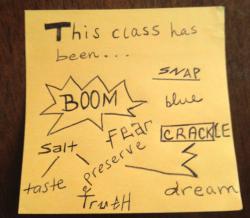 This class has
been...
SNAP
BOOM
blue
Fear
CRACKLE
Salt
preserve
taste
&
TruTH
dream